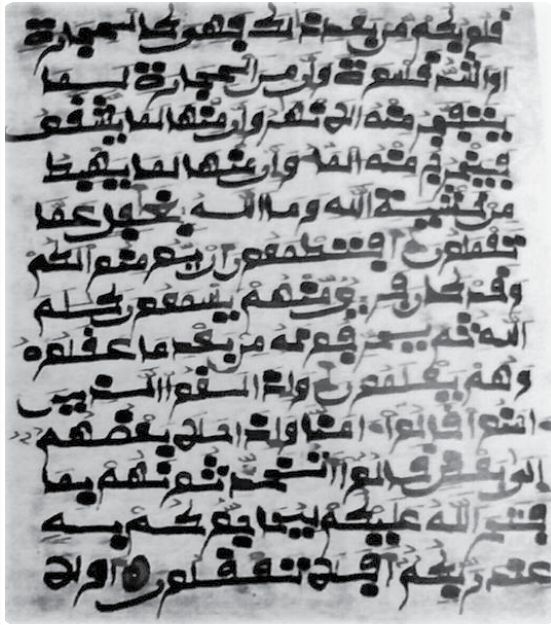 قلوبكم من بعد ذلك فهي كالحجارة
او اشد قسوة وان من الحجارة لما
يتفجر منه الانهر وان منها لما يشقق
فيخرج منه الماء وان منها لما يهبط
من خشية الله وما الله بغفل عما
تعملون افتطمعون ان يومنوا لكم
وقد كان فريق منهم يسمعون كلم
الله ثم يحرفونه من بعد ما عقلوه
وهم يعلمون واذا لقوا الذين
ءامنوا قالوا ءامنا واذا خلا بعضهم
الى بعض قالوا اتحدثونهم بما
فتح الله عليكم ليحاجوكم به
عند ربكم افلا تعقلون اولا